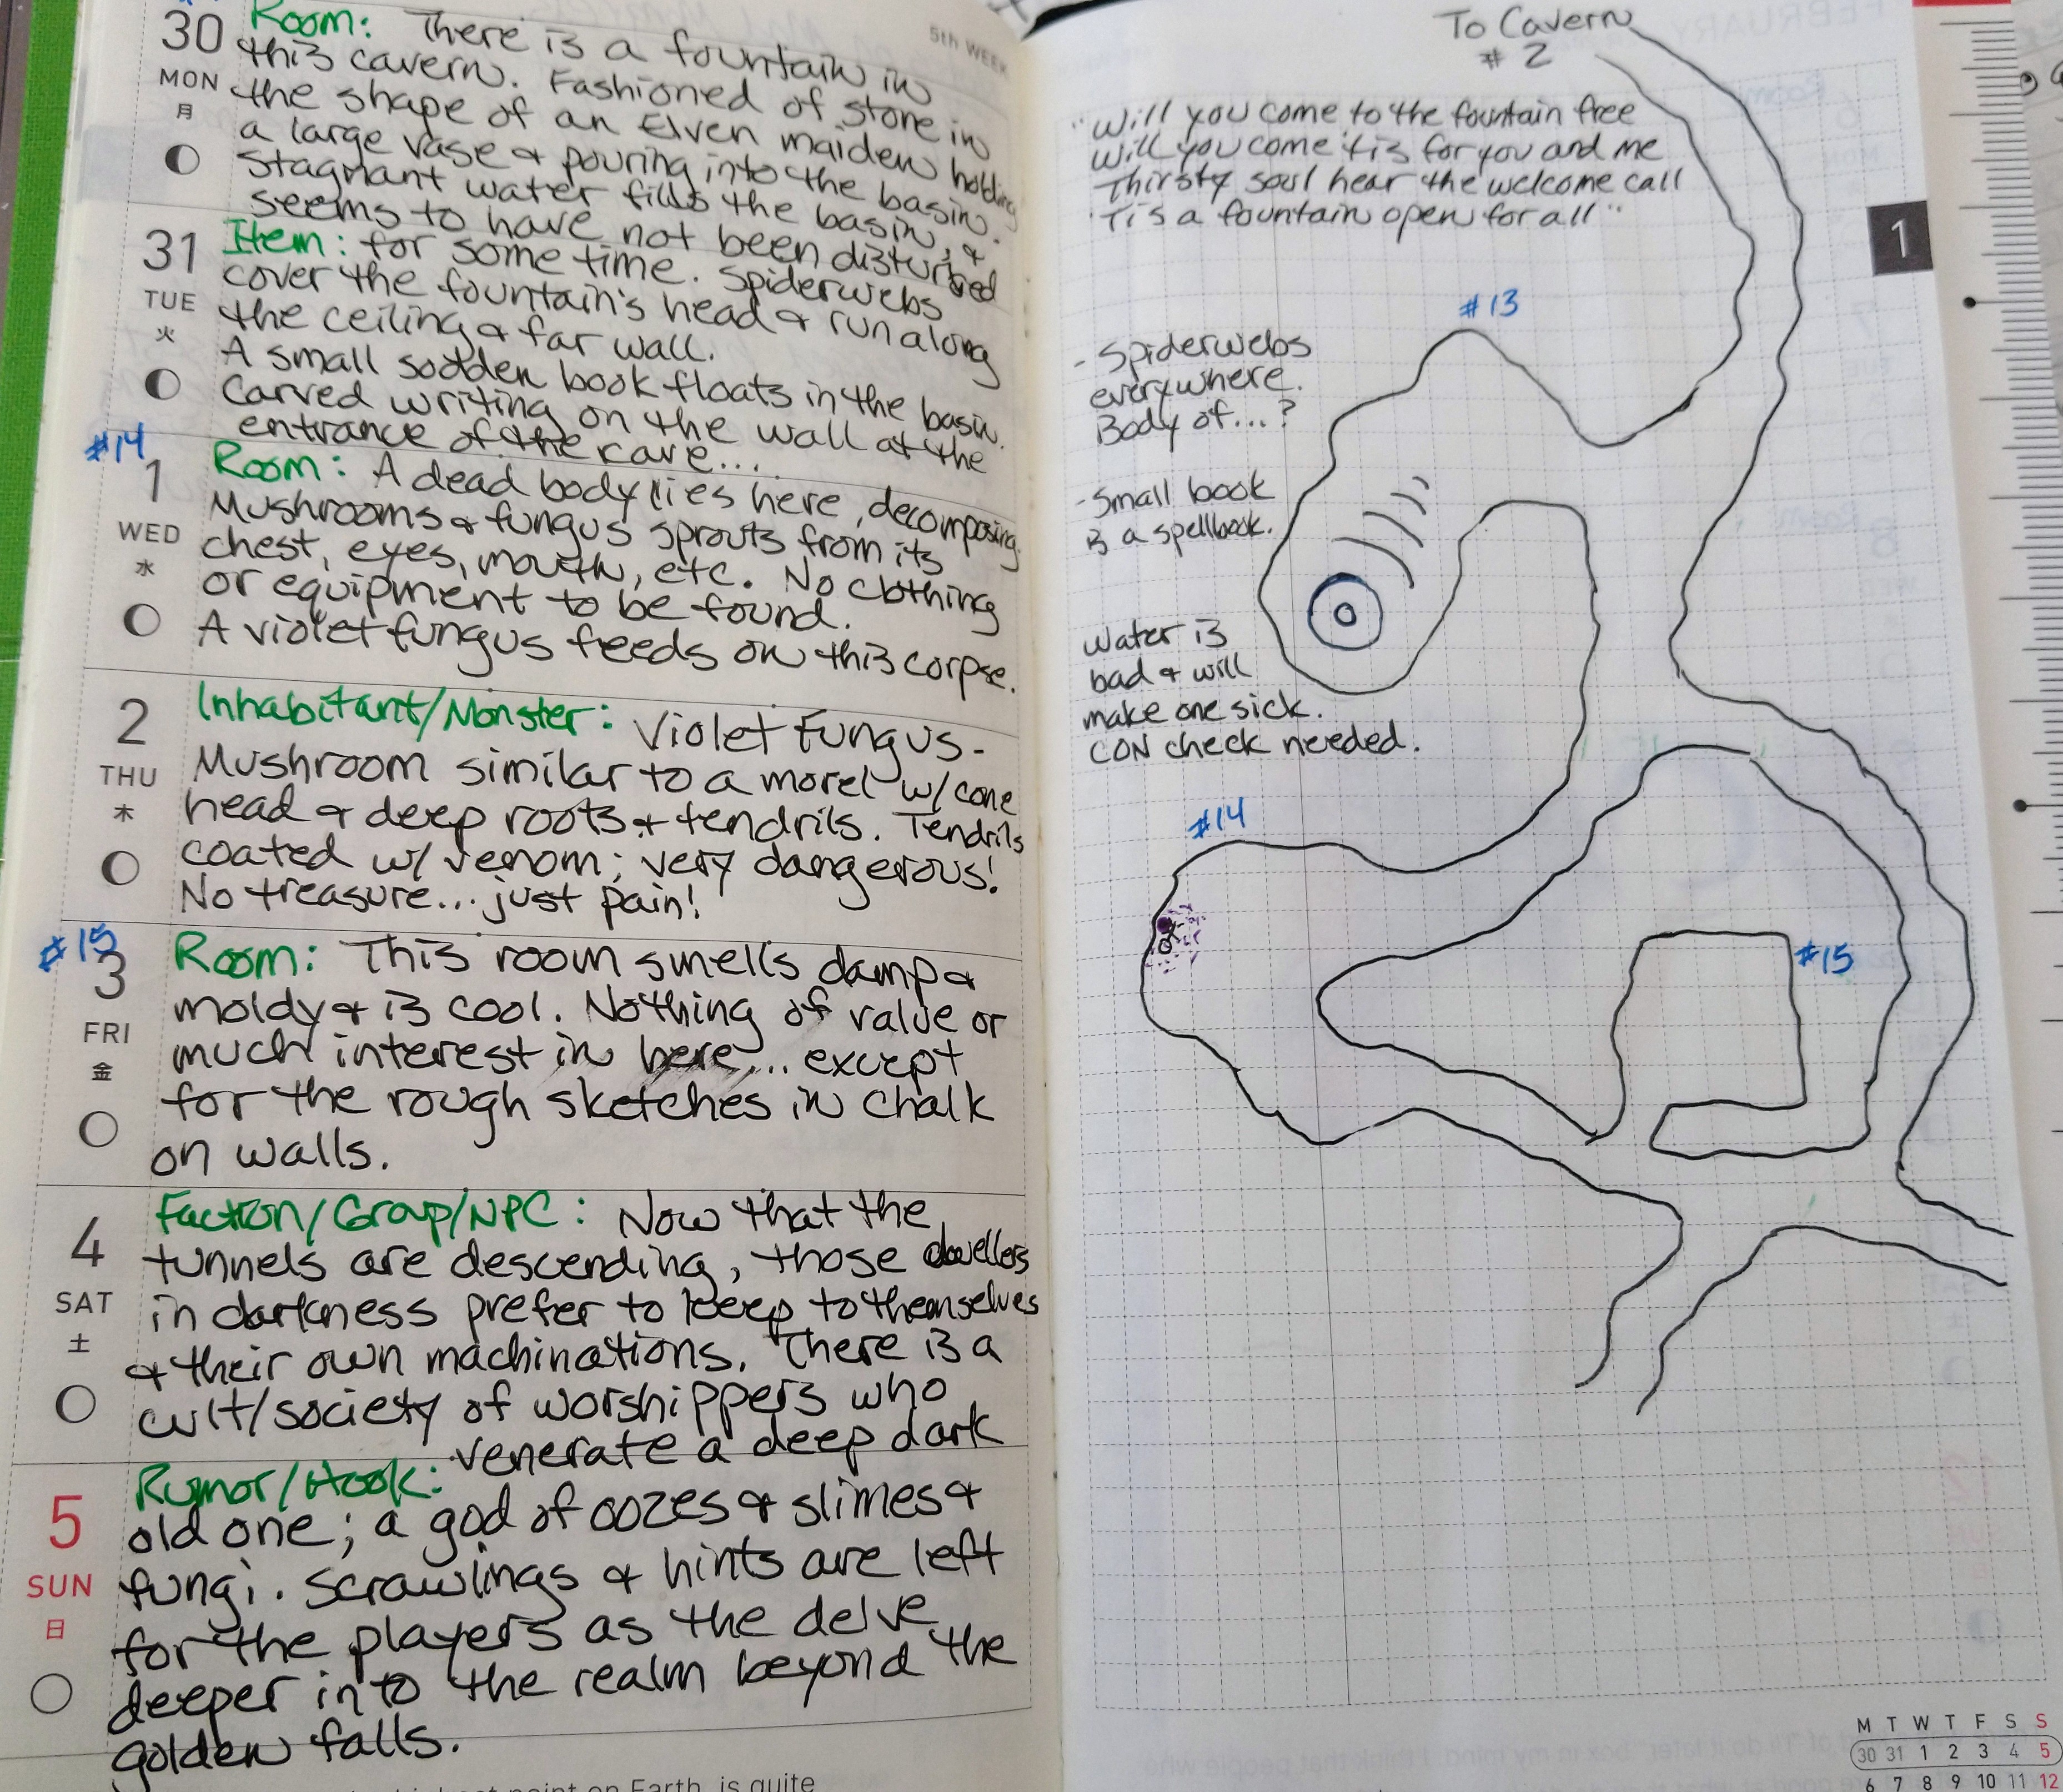 30
MON
月
5th WEEK
Room: There is a fountain in
this cavern. Fashioned of stone in
the shape of an Elven maiden holding
a large vase & pouring into the basin.
Stagnant water fills the basin, &
seems to have not been disturbed
31
TUE
火
Item: for some time. Spiderwebs
cover the fountain's head & run along
the ceiling & far wall.
A small sodden book floats in the basin.
Carved writing on the wall at the
entrance of the cave...
#14
1
WED
水
Room: A dead body lies here, decomposing.
Mushrooms & fungus sprouts from its
chest, eyes, mouth, etc. No clothing
or equipment to be found.
A violet fungus feeds on this corpse.
2
THU
木
Inhabitant/Monster: Violet Fungus-
Mushroom similar to a morel w/ cone
head & deep roots & tendrils. Tendrils
coated w/ venom; very dangerous!
No treasure... just pain!
#15
3
FRI
金
Room: This room smells damp &
moldy & is cool. Nothing of value or
much interest in here... except
for the rough sketches in chalk
on walls.
4
SAT
土
Faction/Group/NPC: Now that the
tunnels are descending, those dwellers
in darkness prefer to keep to themselves
& their own machinations. There is a
cult/society of worshippers who
venerate a deep dark
5
SUN
日
Rumor/Hook:
old one; a god of oozes & slimes &
fungi. Scrawlings & hints are left
for the players as the delve
deeper into the realm beyond the
golden falls.
point on Earth, is quite
To Cavern
# 2
"Will you come to the fountain free
Will you come 'tis for you and me
Thirsty soul hear the welcome call
'Tis a fountain open for all"
1
#13
- Spiderwebs
everywhere.
Body of...?
- Small book
is a spellbook.
Water is
bad & will
make one sick.
CON check needed.
#14
#15
M T W T F S S
30 31 1 2 3 4 5
6 7 8 9 10 11 12